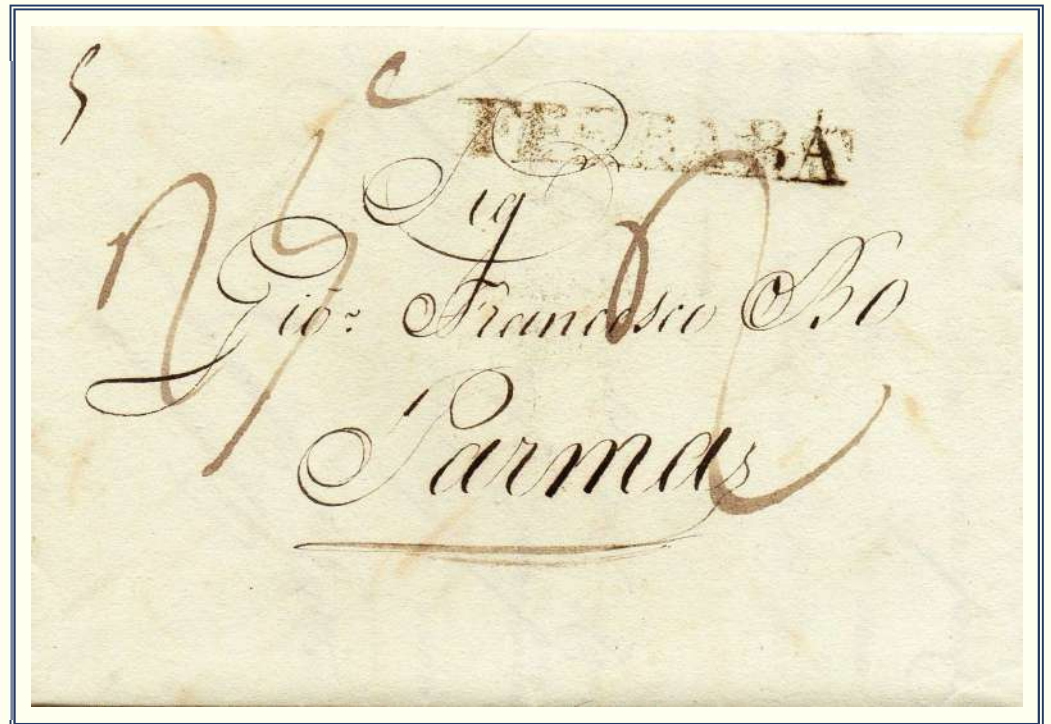 FERRARA
Sig
Gio: Francesco Bo
Parma